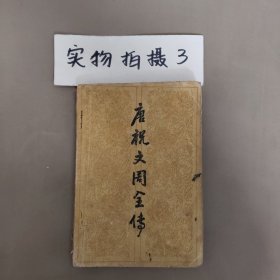 实物拍摄3
唐祝文周全传